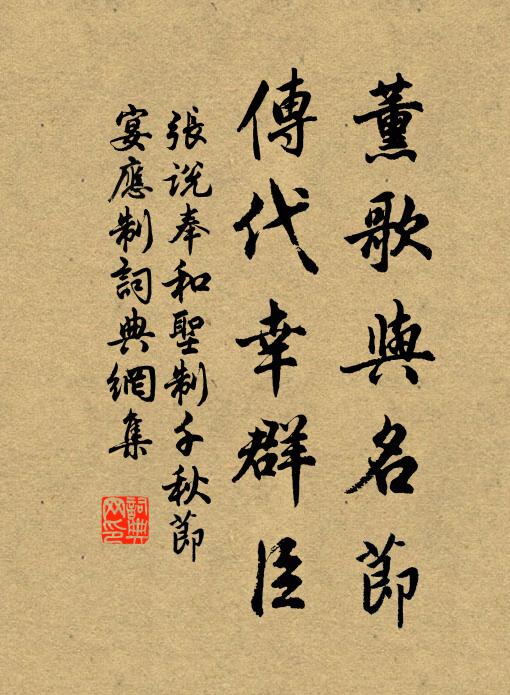 薰歌與名節
傳代幸群臣
張說奉和聖制千秋節
宴應制詞典網集
詞典網印